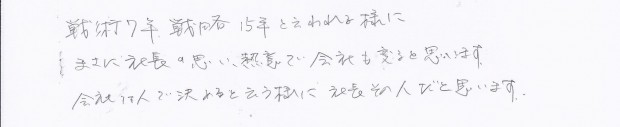 戦術7年 戦略15年と云われる様に
まさに社長の思い、熱意で会社も変ると思います
会社は人で決めると云う様に社長その人だと思います.